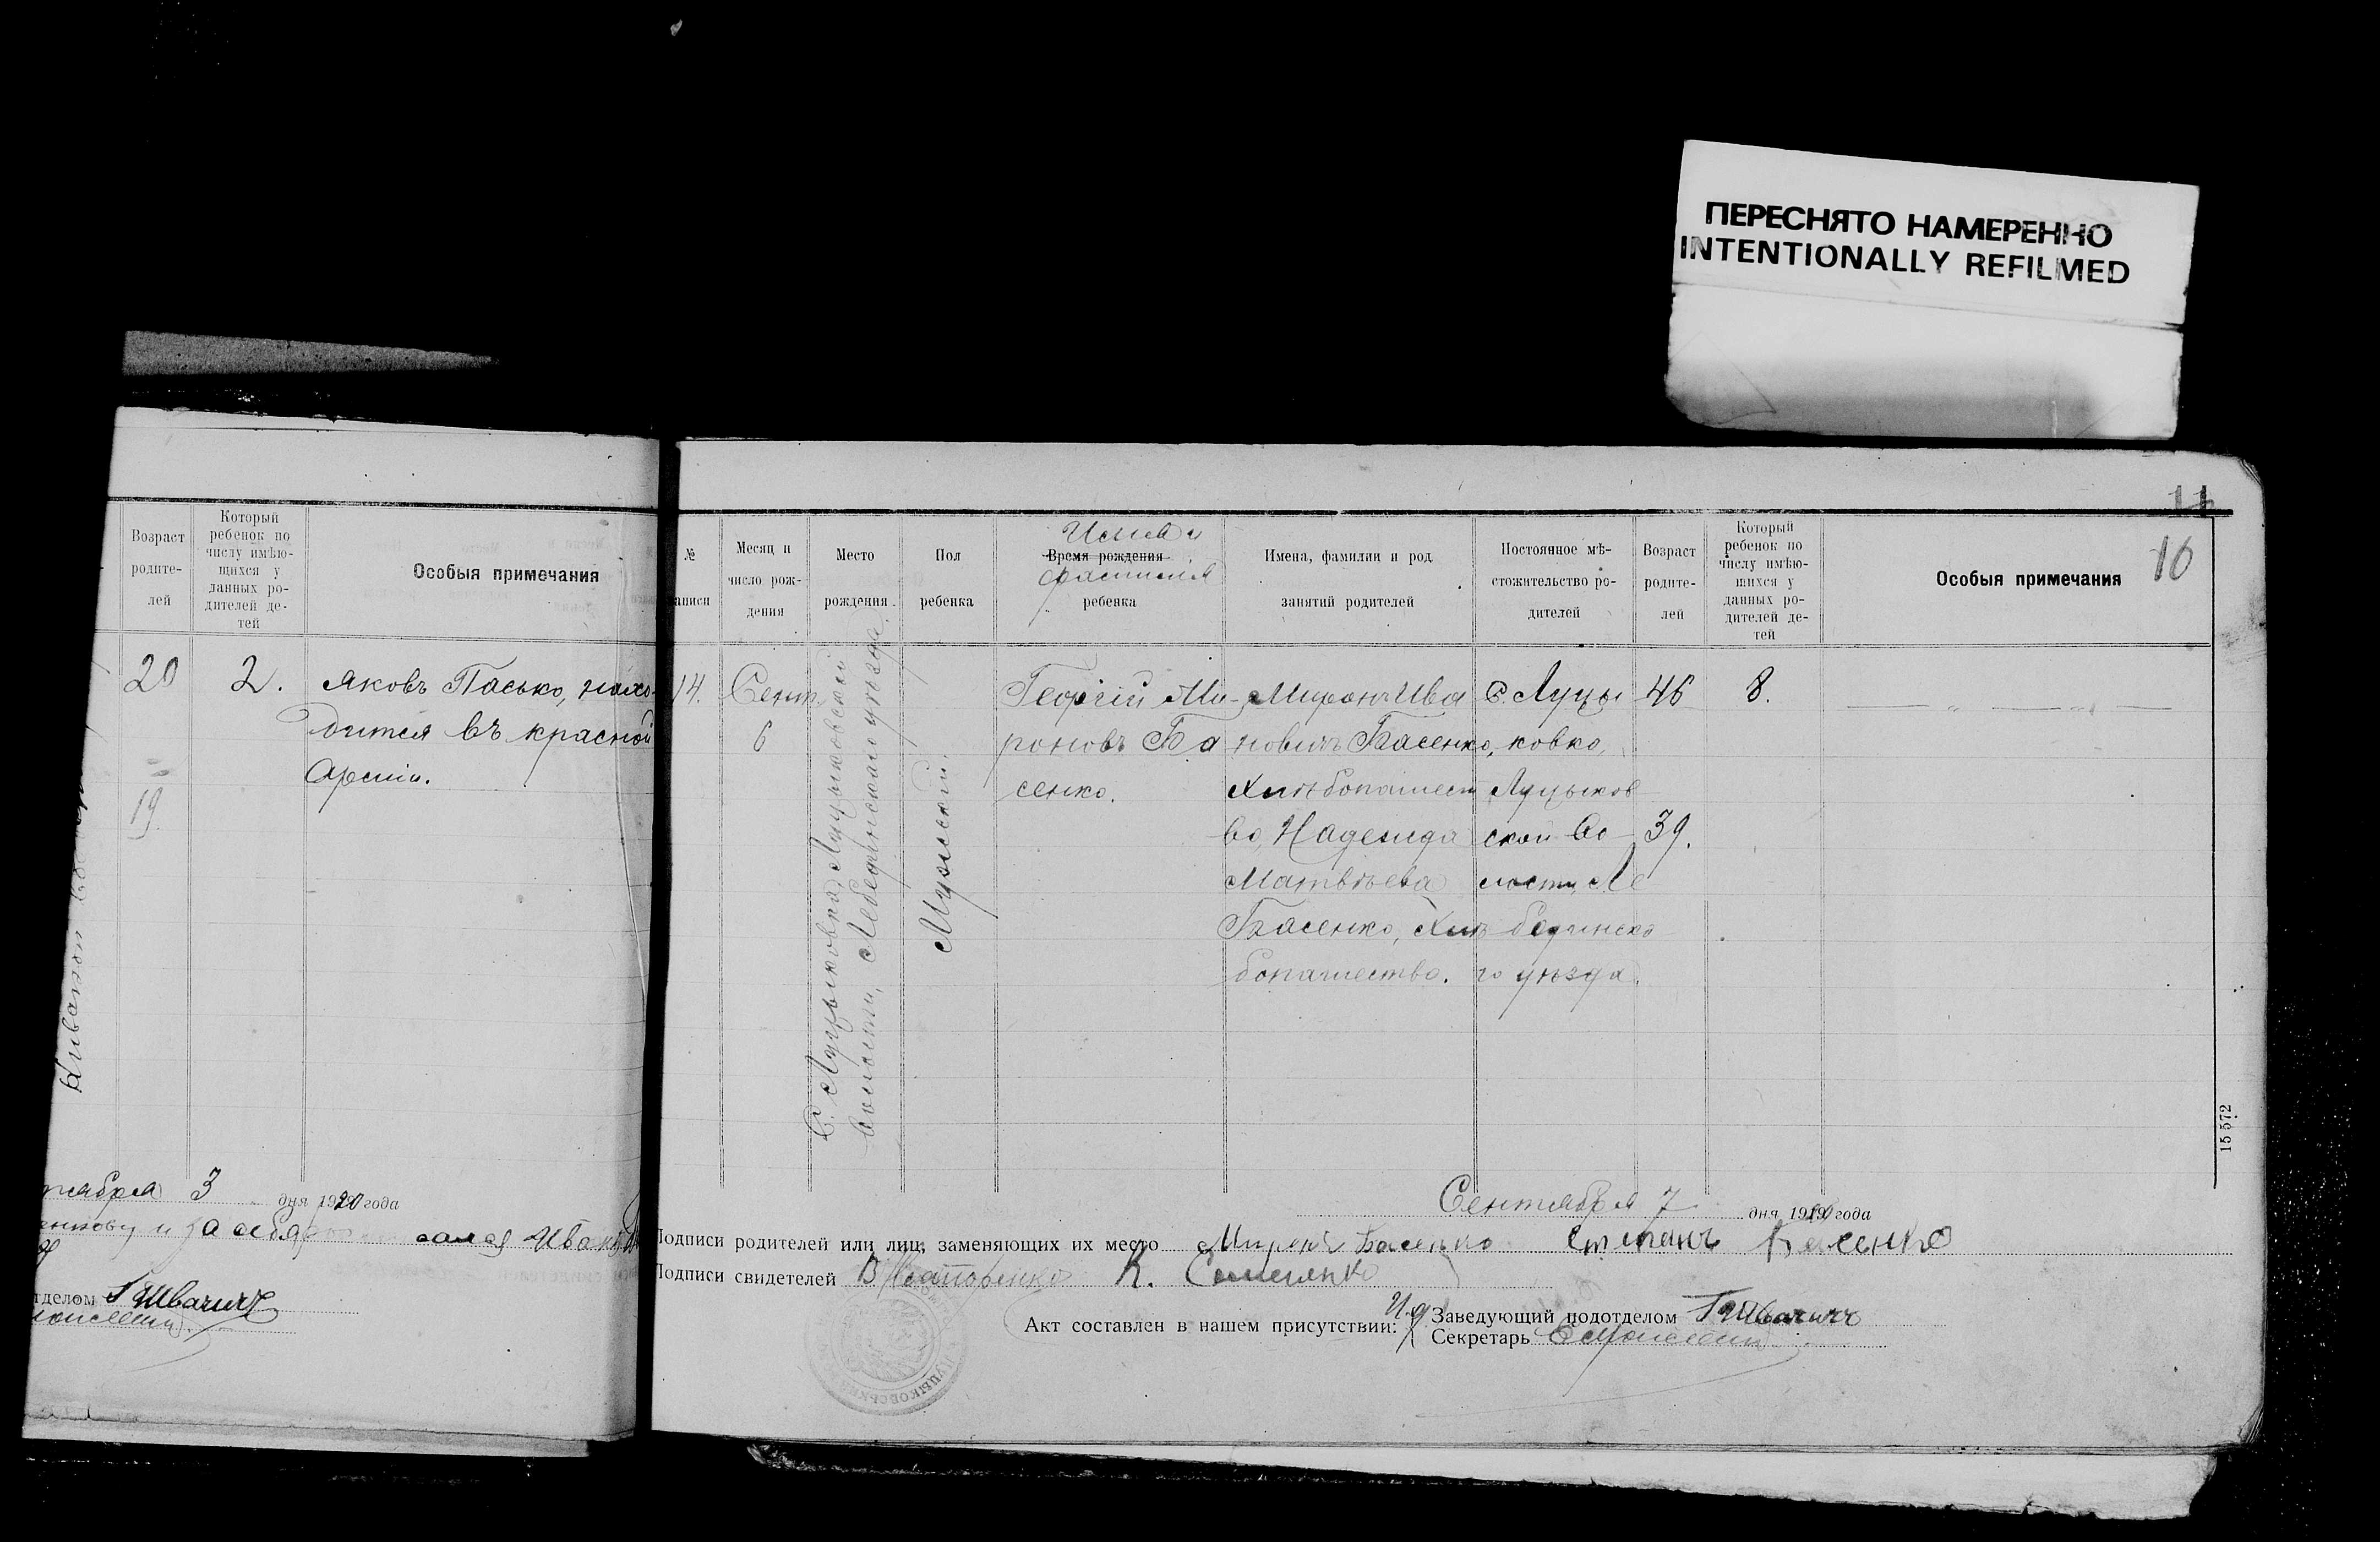 ПЕРЕСНЯТО НАМЕРЕННО
INTENTIONALLY REFILMED
Возраст
родите-
лей
Который
ребенок по
числу имѣю-
щихся у
данных ро-
дителей де-
тей
Особыя примечания
20
2.
Яковъ Пасько, нахо-
дится въ красной
Арміи.
19
тября 3 дня 1920 года
и за себя
тделом Г Швачичъ
11
10
№
аписи
Месяц и
число рож-
дения
Место
рождения.
Пол
ребенка
Имя и
Время рождения
фамилія
ребенка
Имена, фамилии и род
занятий родителей
Постоянное мѣ-
стожительство ро-
дителей
Возраст
родите-
лей
Который
ребенок по
числу имѣю-
щихся у
данных ро-
дителей де-
тей
Особыя примечания
14.
Сент.
6
С. Луцыковка, Луцыковской
волости, Лебединскаго уѣзда.
Мужскій.
Георгій Ми-
роновъ Ба
сенко.
Миронъ Ива
новичъ Басенко,
Хлѣбопашест
во, Надежда
Матвѣева
Басенко, Хлѣ
бопашество.
С. Луцы
ковка,
Луцыков
ской во
лости, Ле
бединска
го уѣзда.
46
39.
8.
15572
Сентября 7 дня 1920 года
Подписи родителей или лиц, заменяющих их место Миронъ Басенко Степанъ Басенко
Подписи свидетелей В. К.
Акт составлен в нашем присутствии: И.д. Заведующий подотделом Г Швачичъ
Секретарь